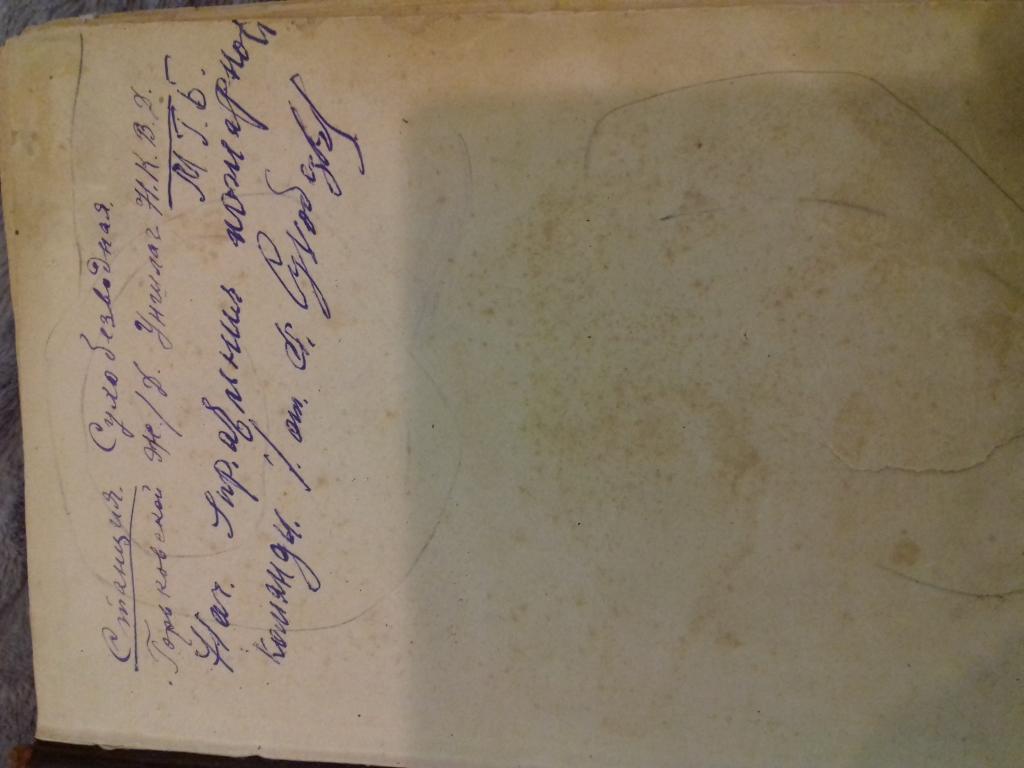 Станция. Сухобезводная.
Горьковской ж/д. Унжлаг Н.К.В.Д.
М.Г.Б.
Нач. Управления пожарной
команды. / от. Ф.